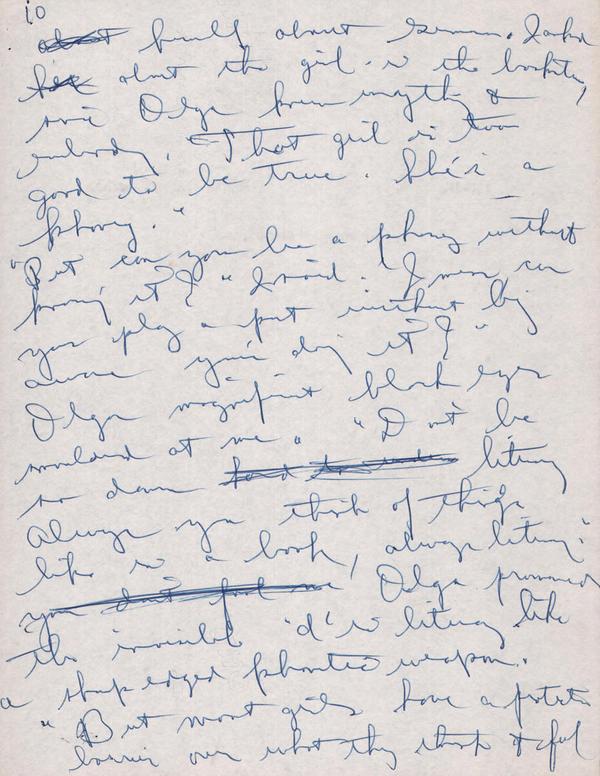 10
about herself about German. I asked
her about the girl in the bookstore,
since Olga knew anything &
embody. "That girl is too
good to be true. She's a
phony."
"But can you be a phony without
knowing it?" I said. "I mean can
you play a part without being
aware you're doing it?"
Olga magnificent black eyes
at me. "Don't be
so damn literary
Always you think of things
like in a book, always literary."
you don't fool me Olga pronounced
the invisible 'd' in literary like
a sharp edged phonetic weapon.
"But most girls have a
barrier over what they think & feel